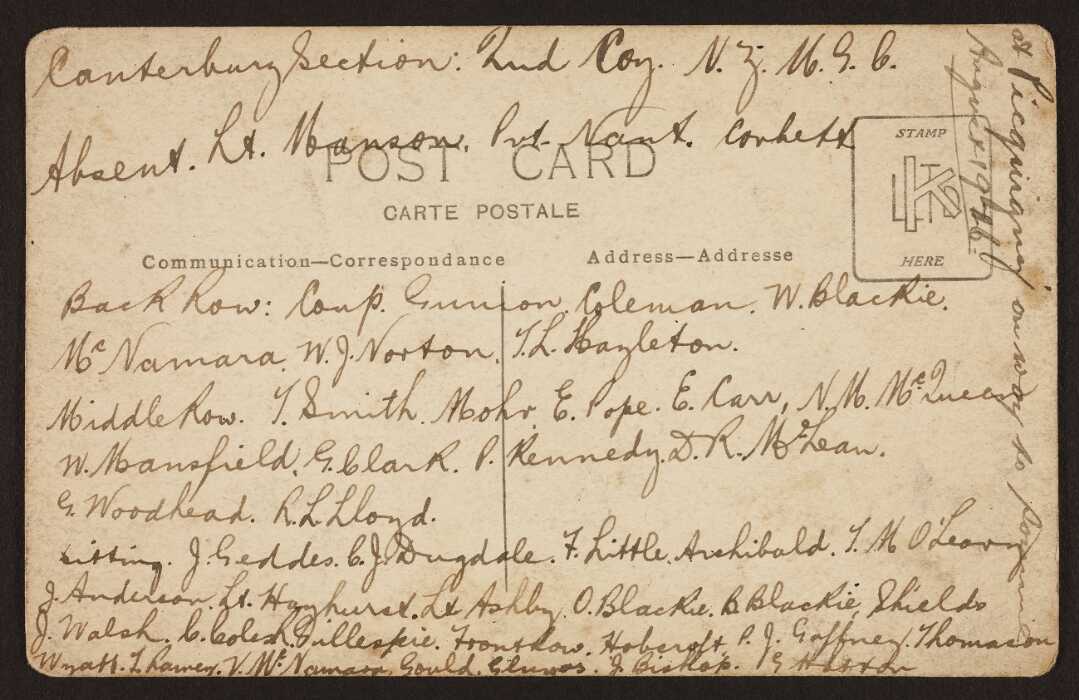 Canterbury Section: 2nd Coy. N. Z. M. G. C.
Absent. Lt. Manson. Pvt. Nant. Corbett
POST CARD
CARTE POSTALE
Communication—Correspondance
Address—Addresse
STAMP
HERE
at Picquigny on way to Somme
August 1916.
Back Row: Coup. Gunion. Coleman. W. Blackie.
Mc Namara. W. J. Norton. T. L. Hazleton.
Middle Row. T. Smith. Mohr. E. Pope. E. Carr, N. M. McQueen
W. Mansfield. G. Clark. P. Kennedy. D. R. McLean.
G. Woodhead. R. L. Lloyd.
Sitting. J. Geddes. C. J. Dugdale. F. Little. Archibald. T. M O'Leary
J. Anderson. Lt. Hayhurst. Lt Ashby. O. Blackie. B. Blackie, Shields
J. Walsh. C. Coles. Gillespie. Front Row. Hobcroft. P. J. Gaffney. Thomason
Wyatt. V. Mc Namara. Gould. J. Bishop. G